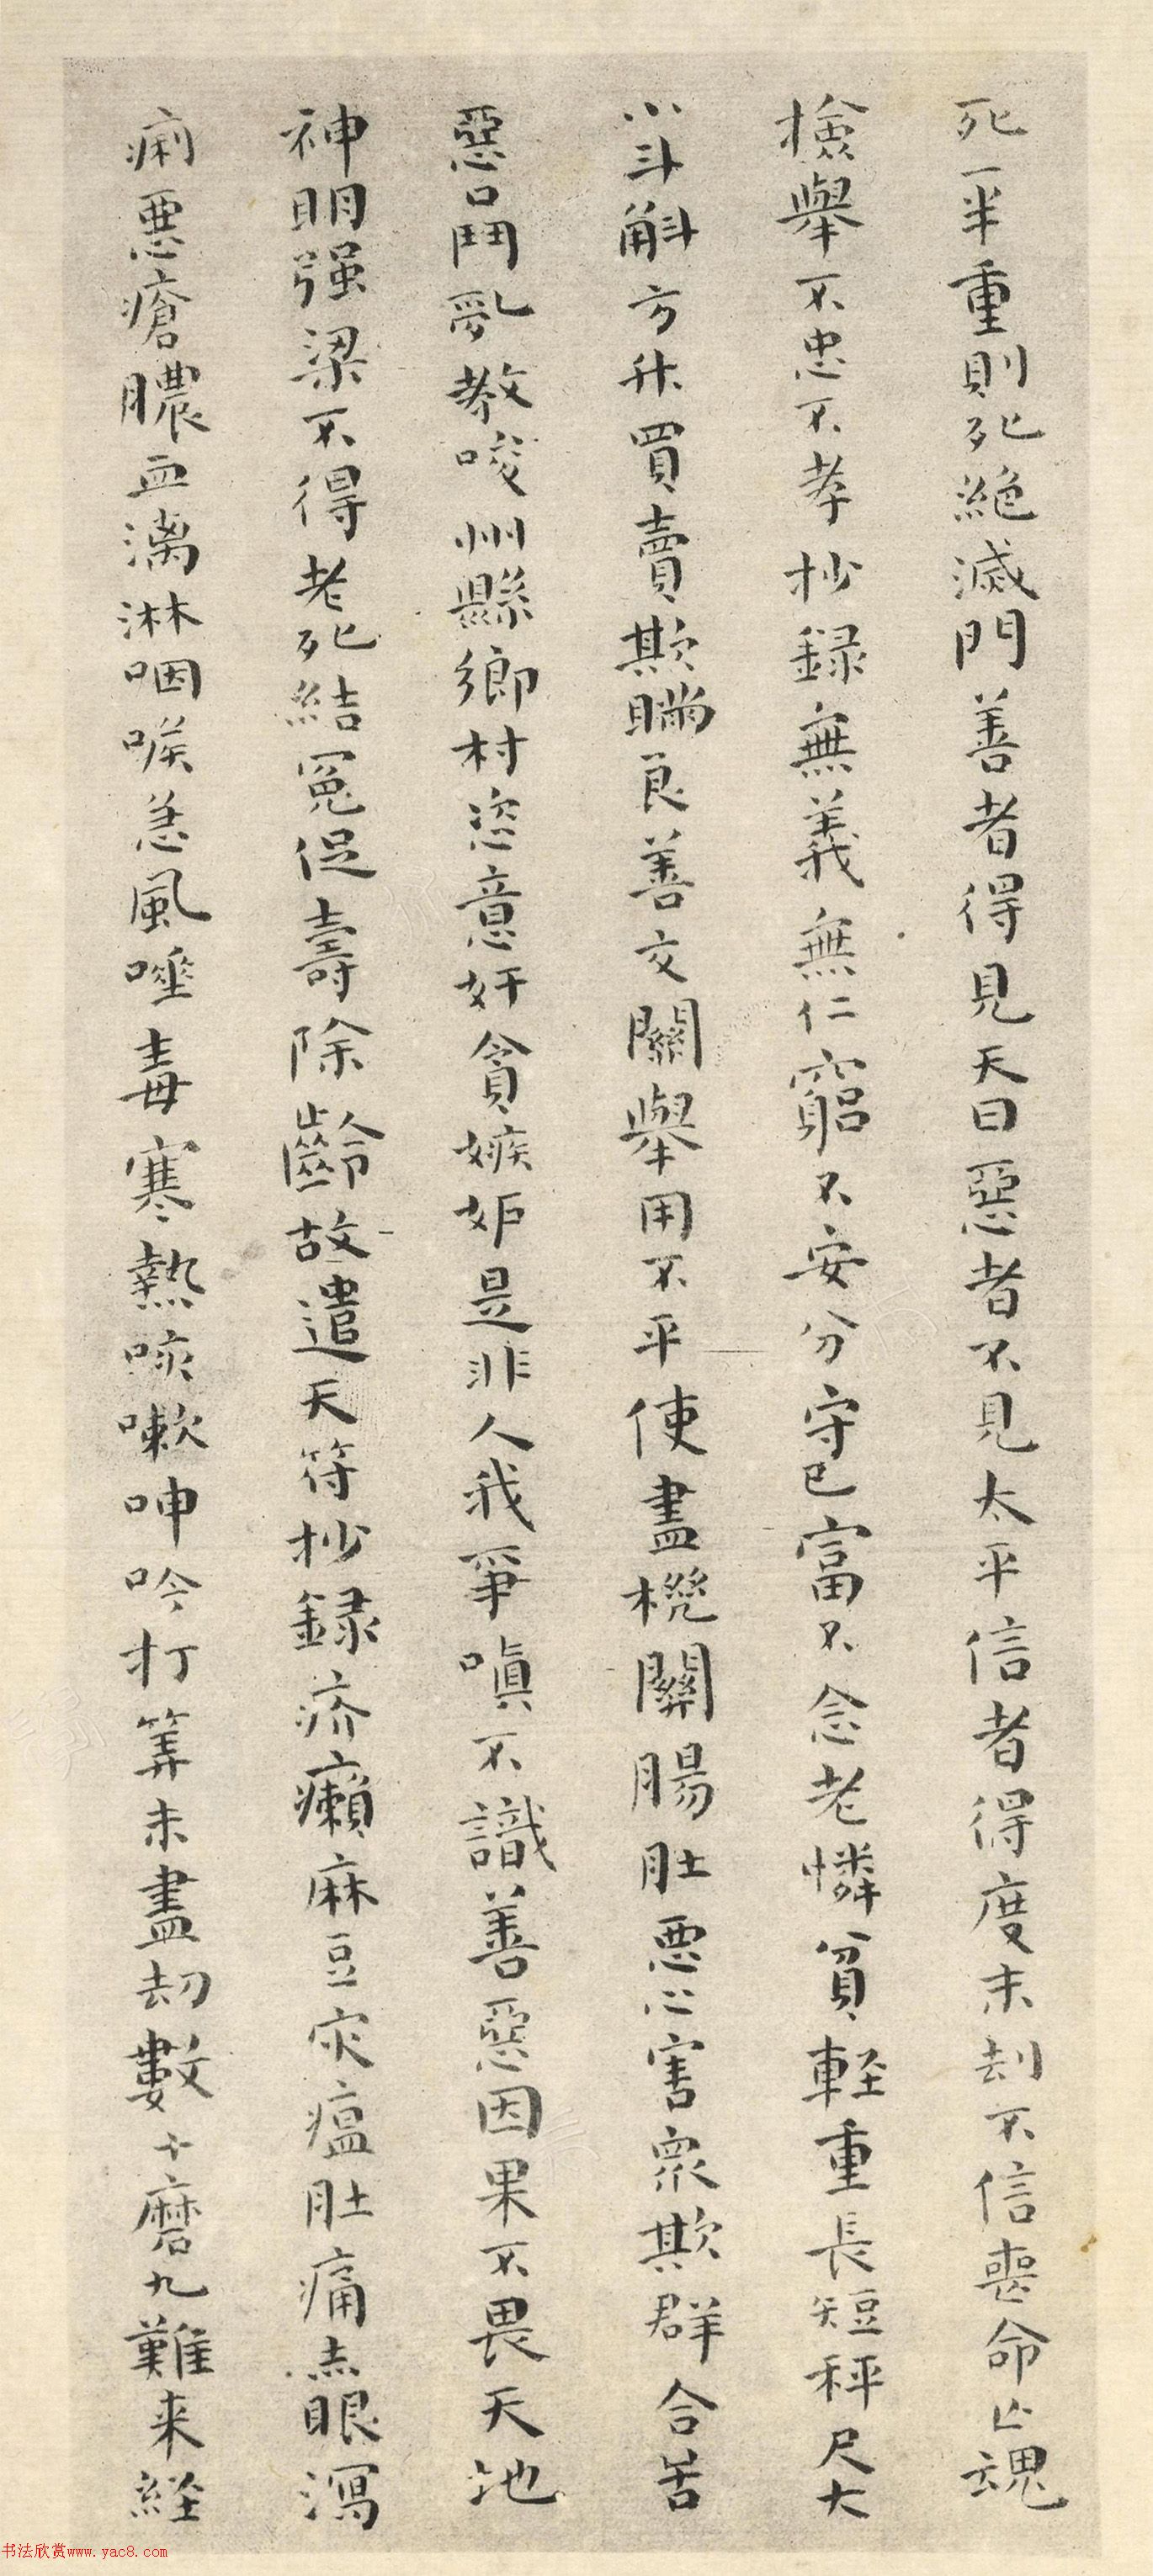 死一半重則死絕滅門善者得見天日惡者不見太平信者得度末刼不信喪命亡魂
撿舉不忠不孝抄録無義無仁窮不安分守己富不念老憐貧輕重長短秤尺大
小斗斛方升買賣欺瞞良善交關舉用不平使盡機關腸肚惡心害衆欺群合舌
惡口鬪乱教唆州縣鄉村恣意奸貪嫉妒是非人我爭嗔不識善惡因果不畏天地
神明强梁不得老死結冤促壽除齡故遣天符抄録疥癩麻豆灾瘟肚痛赤眼瀉
痢惡瘡膿血漓淋咽喉急風唑毒寒熱咳嗽呻吟打筭未盡劫數十磨九難来經
书法欣赏www.yac8.com